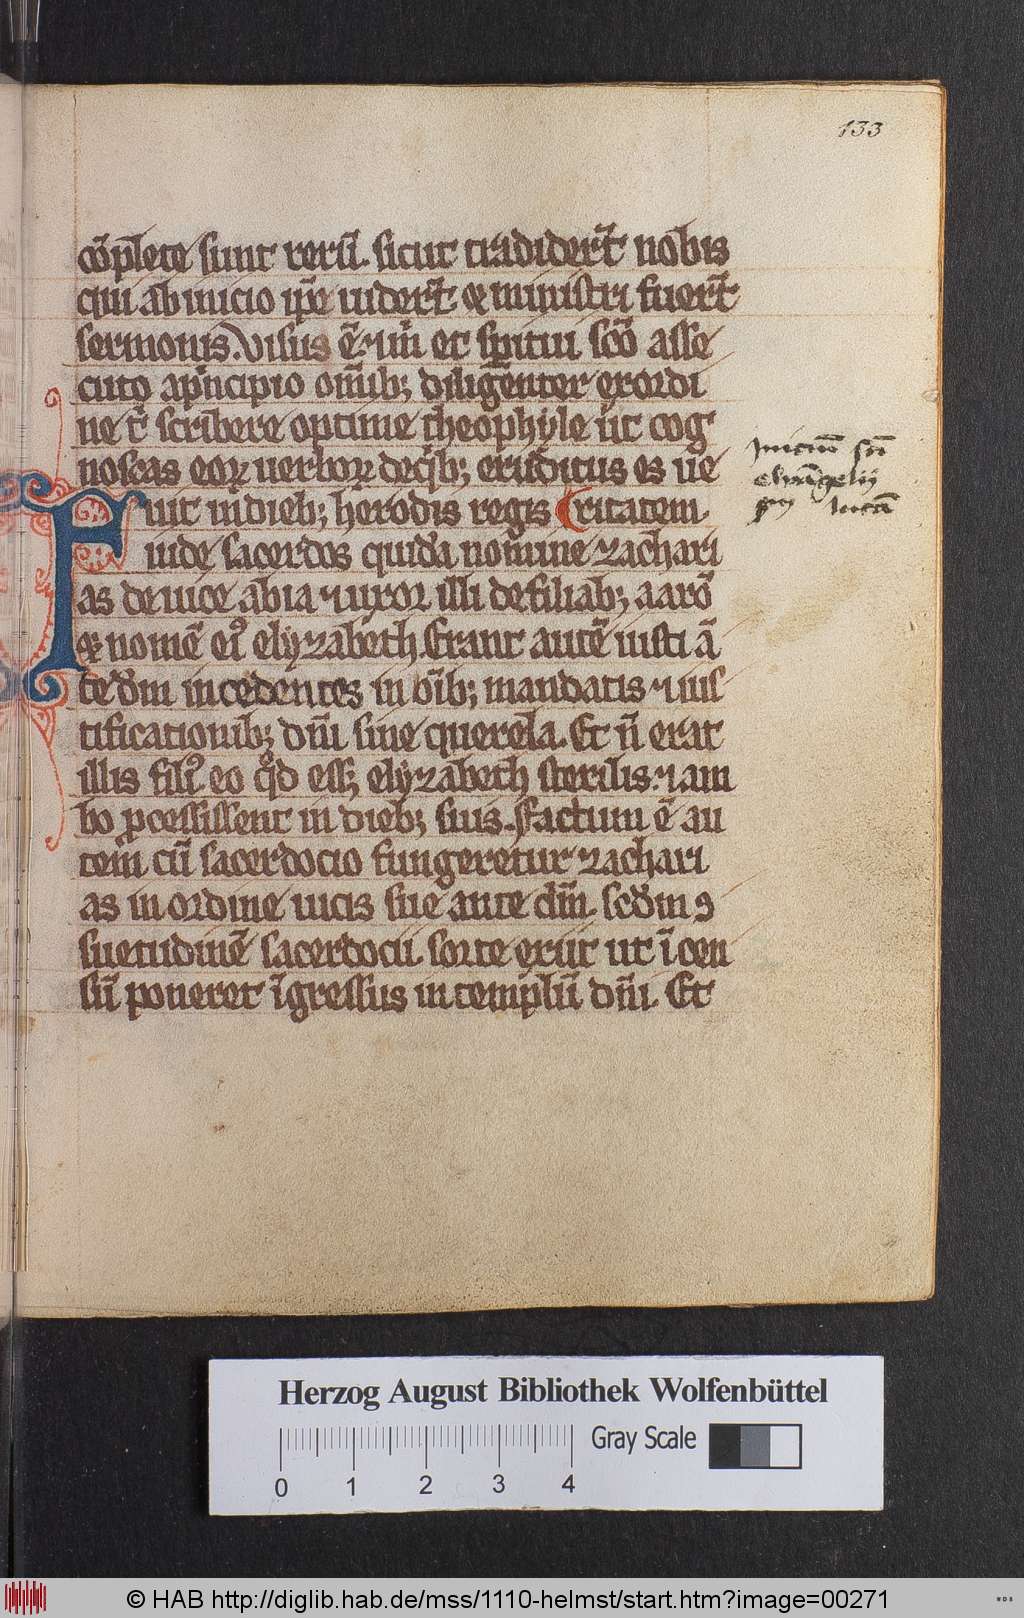 133
cōplete sunt rerū. sicut tradiderūt nobis
qui ab inicio ip̄e uider̄t. & ministri fuer̄t
sermonis. Visus ē ⁊ m̄ et spiritui sc̄o asse
cuto a p̍ncipio om̄ib; diligenter ex ordi
ne t̄ scribere optime theophyle ut cog
noscas eoꝝ uerboꝝ de qͥb; eruditus es ue
Fuit in dieb; herodis regis ritatem
iude sacerdos quidā nomine zachari
as de uice abia ⁊ uxor illi de filiab; aarō
& nomē ei᷒ elyzabeth. Erant autē iusti ā
te dm̄ incedentes in om̄ib; mandatis ⁊ ius
tificationib; dn̄i sine querela. Et n̄ erat
illis fili᷒ eo qd̄ ess; elyzabeth sterilis. ⁊ am
bo pcessissent in dieb; suis. Factum ē au
tem cū sacerdocio fungeretur zachari
as in ordine uicis sue ante dm̄. scd̄m ꝯ
suetudinē sacerdocii. sorte exiit ut īcen
sū poneret īgressus in templū dn̄i. Et
Iniciū sn̄
Ewāgelij
lucā
Herzog August Bibliothek Wolfenbüttel
Gray Scale
0 1 2 3 4
© HAB http://diglib.hab.de/mss/1110-helmst/start.htm?image=00271